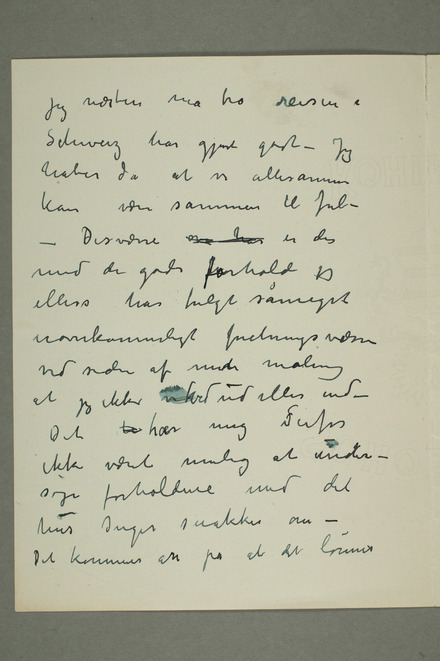 jeg næsten må tro reisen i
Schweiz har gjort godt – Jeg
håber da at vi allesammen
kan være sammen til Jul –
– Desværre er der
med de gode forhold jeg
ellers har fulgt såmeget
uvedkommende
ved siden af min maling
at jeg ikke ved ud eller ind –
Det har mig derfor
ikke været mulig at under-
søge forholdene med det
hus Inger snakker om –
Det kommer an på at det lønner